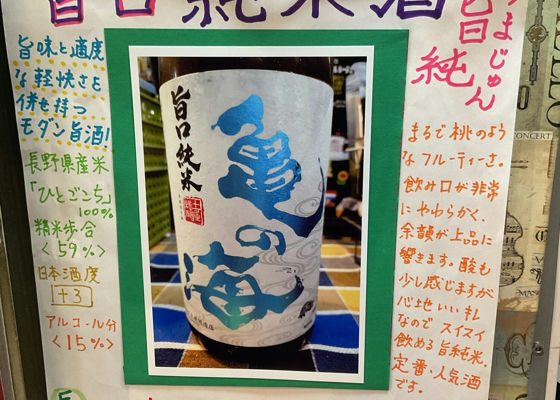 旨口純米酒
うまじゅん
旨純
旨味と適度
な軽快さを
併せ持つ
モダン旨酒!
長野県産米
「ひとごこち」
100%
精米歩合
〈59%〉
日本酒度
+3
アルコール分
〈15%〉
旨口純米
亀の海
まるで桃のよう
なフルーティーさ。
飲み口が非常
にやわらかく、
余韻が上品に
響きます。酸も
少し感じますが
心地いい
なのでスイスイ
飲める旨純米。
定番・人気酒
です。
CONCERT